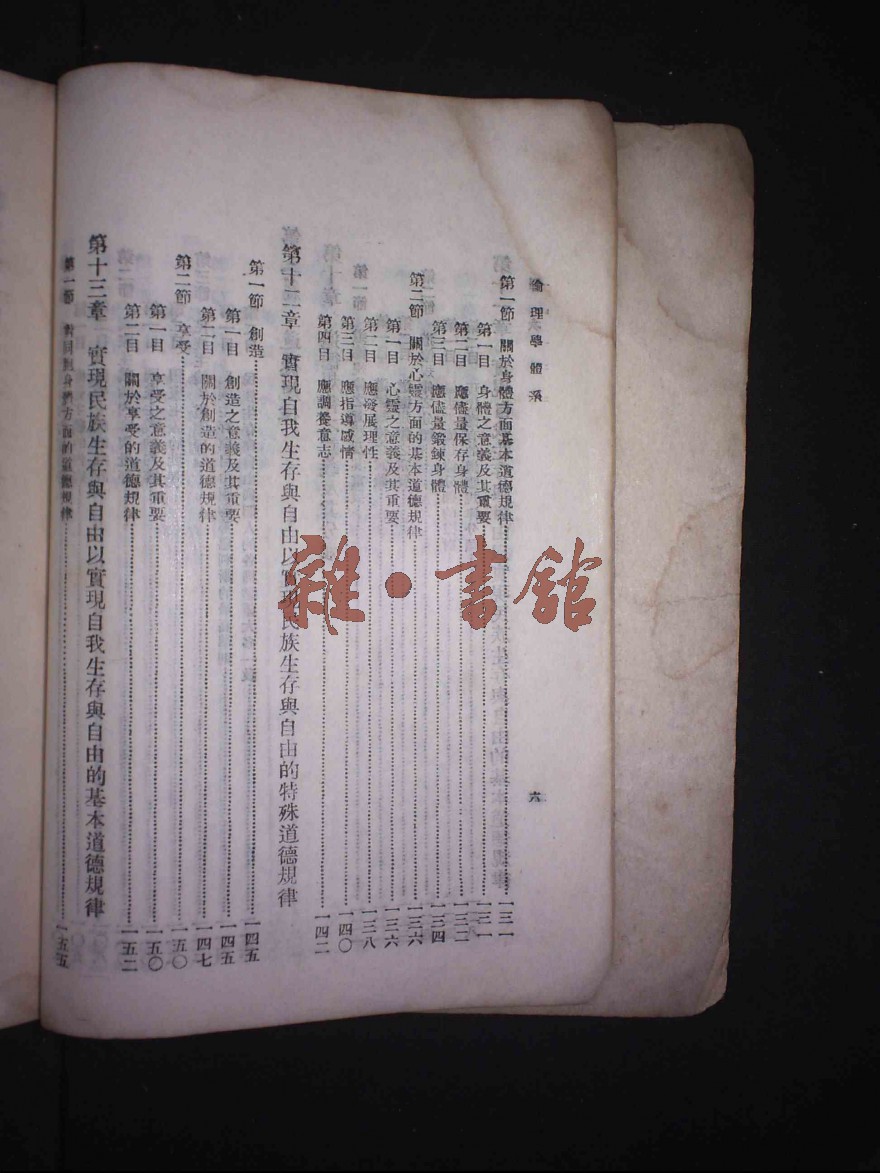 倫理學體系
六
第一節 關於身體方面基本道德規律 一三一
第一目 身體之意義及其重要 一三一
第二目 應儘量保存身體 一三二
第三目 應儘量鍛鍊身體 一三四
第二節 關於心靈方面的基本道德規律 一三六
第一目 心靈之意義及其重要 一三六
第二目 應發展理性 一三八
第三目 應指導感情 一四〇
第四目 應調養意志 一四二
第十二章 實現自我生存與自由以實現民族生存與自由的特殊道德規律
第一節 創造 一四五
第一目 創造之意義及其重要 一四五
第二目 關於創造的道德規律 一四七
第二節 享受 一五〇
第一目 享受之意義及其重要 一五〇
第二目 關於享受的道德規律 一五二
第十三章 實現民族生存與自由以實現自我生存與自由的基本道德規律
第一節 對同胞身體方面的道德規律 一五五
雜·書館